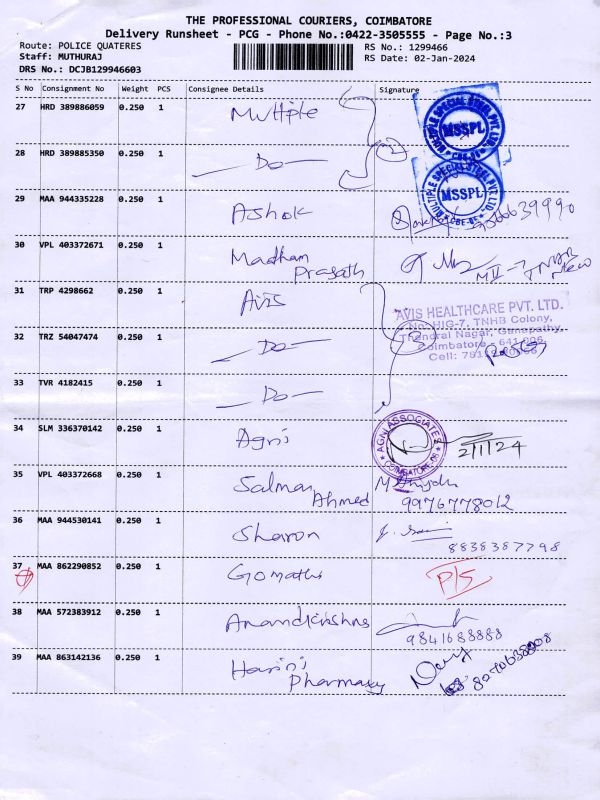 THE PROFESSIONAL COURIERS, COIMBATORE
Delivery Runsheet - PCG - Phone No.:0422-3505555 - Page No.:3
Route: POLICE QUATERES
Staff: MUTHURAJ
DRS No.: DCJB129946603
RS No.: 1299466
RS Date: 02-Jan-2024
S No Consignment No Weight PCS Consignee Details Signature
27 HRD 389886059 0.250 1 Multiple
MULTIPLE SPECIAL STEEL PVT. LTD.
MSSPL
CBE-05
28 HRD 389885350 0.250 1 - Do - 2
MULTIPLE SPECIAL STEEL PVT. LTD.
MSSPL
CBE-05
29 MAA 944335228 0.250 1 Ashok
30 VPL 403372671 0.250 1 Madham
Prasath
31 TRP 4298662 0.250 1 Avis
AVIS HEALTHCARE PVT. LTD.
No: HIG-7, TNHB Colony,
Thendral Nagar, Ganapathy,
Coimbatore - 641 006.
32 TRZ 54047474 0.250 1 - Do -
Cell:
33 TVR 4182415 0.250 1 - Do -
34 SLM 336370142 0.250 1 Agni
AGNI ASSOCIATES
COIMBATORE-06
2/1/24
35 VPL 403372668 0.250 1 Salman
Ahmed
9976778012
36 MAA 944530141 0.250 1 Sharon
8838387798
37 MAA 862290852 0.250 1 Gomathi P/S
38 MAA 572383912 0.250 1 Anandkrishna
9841688888
39 MAA 863142136 0.250 1 Harini
Pharmacy